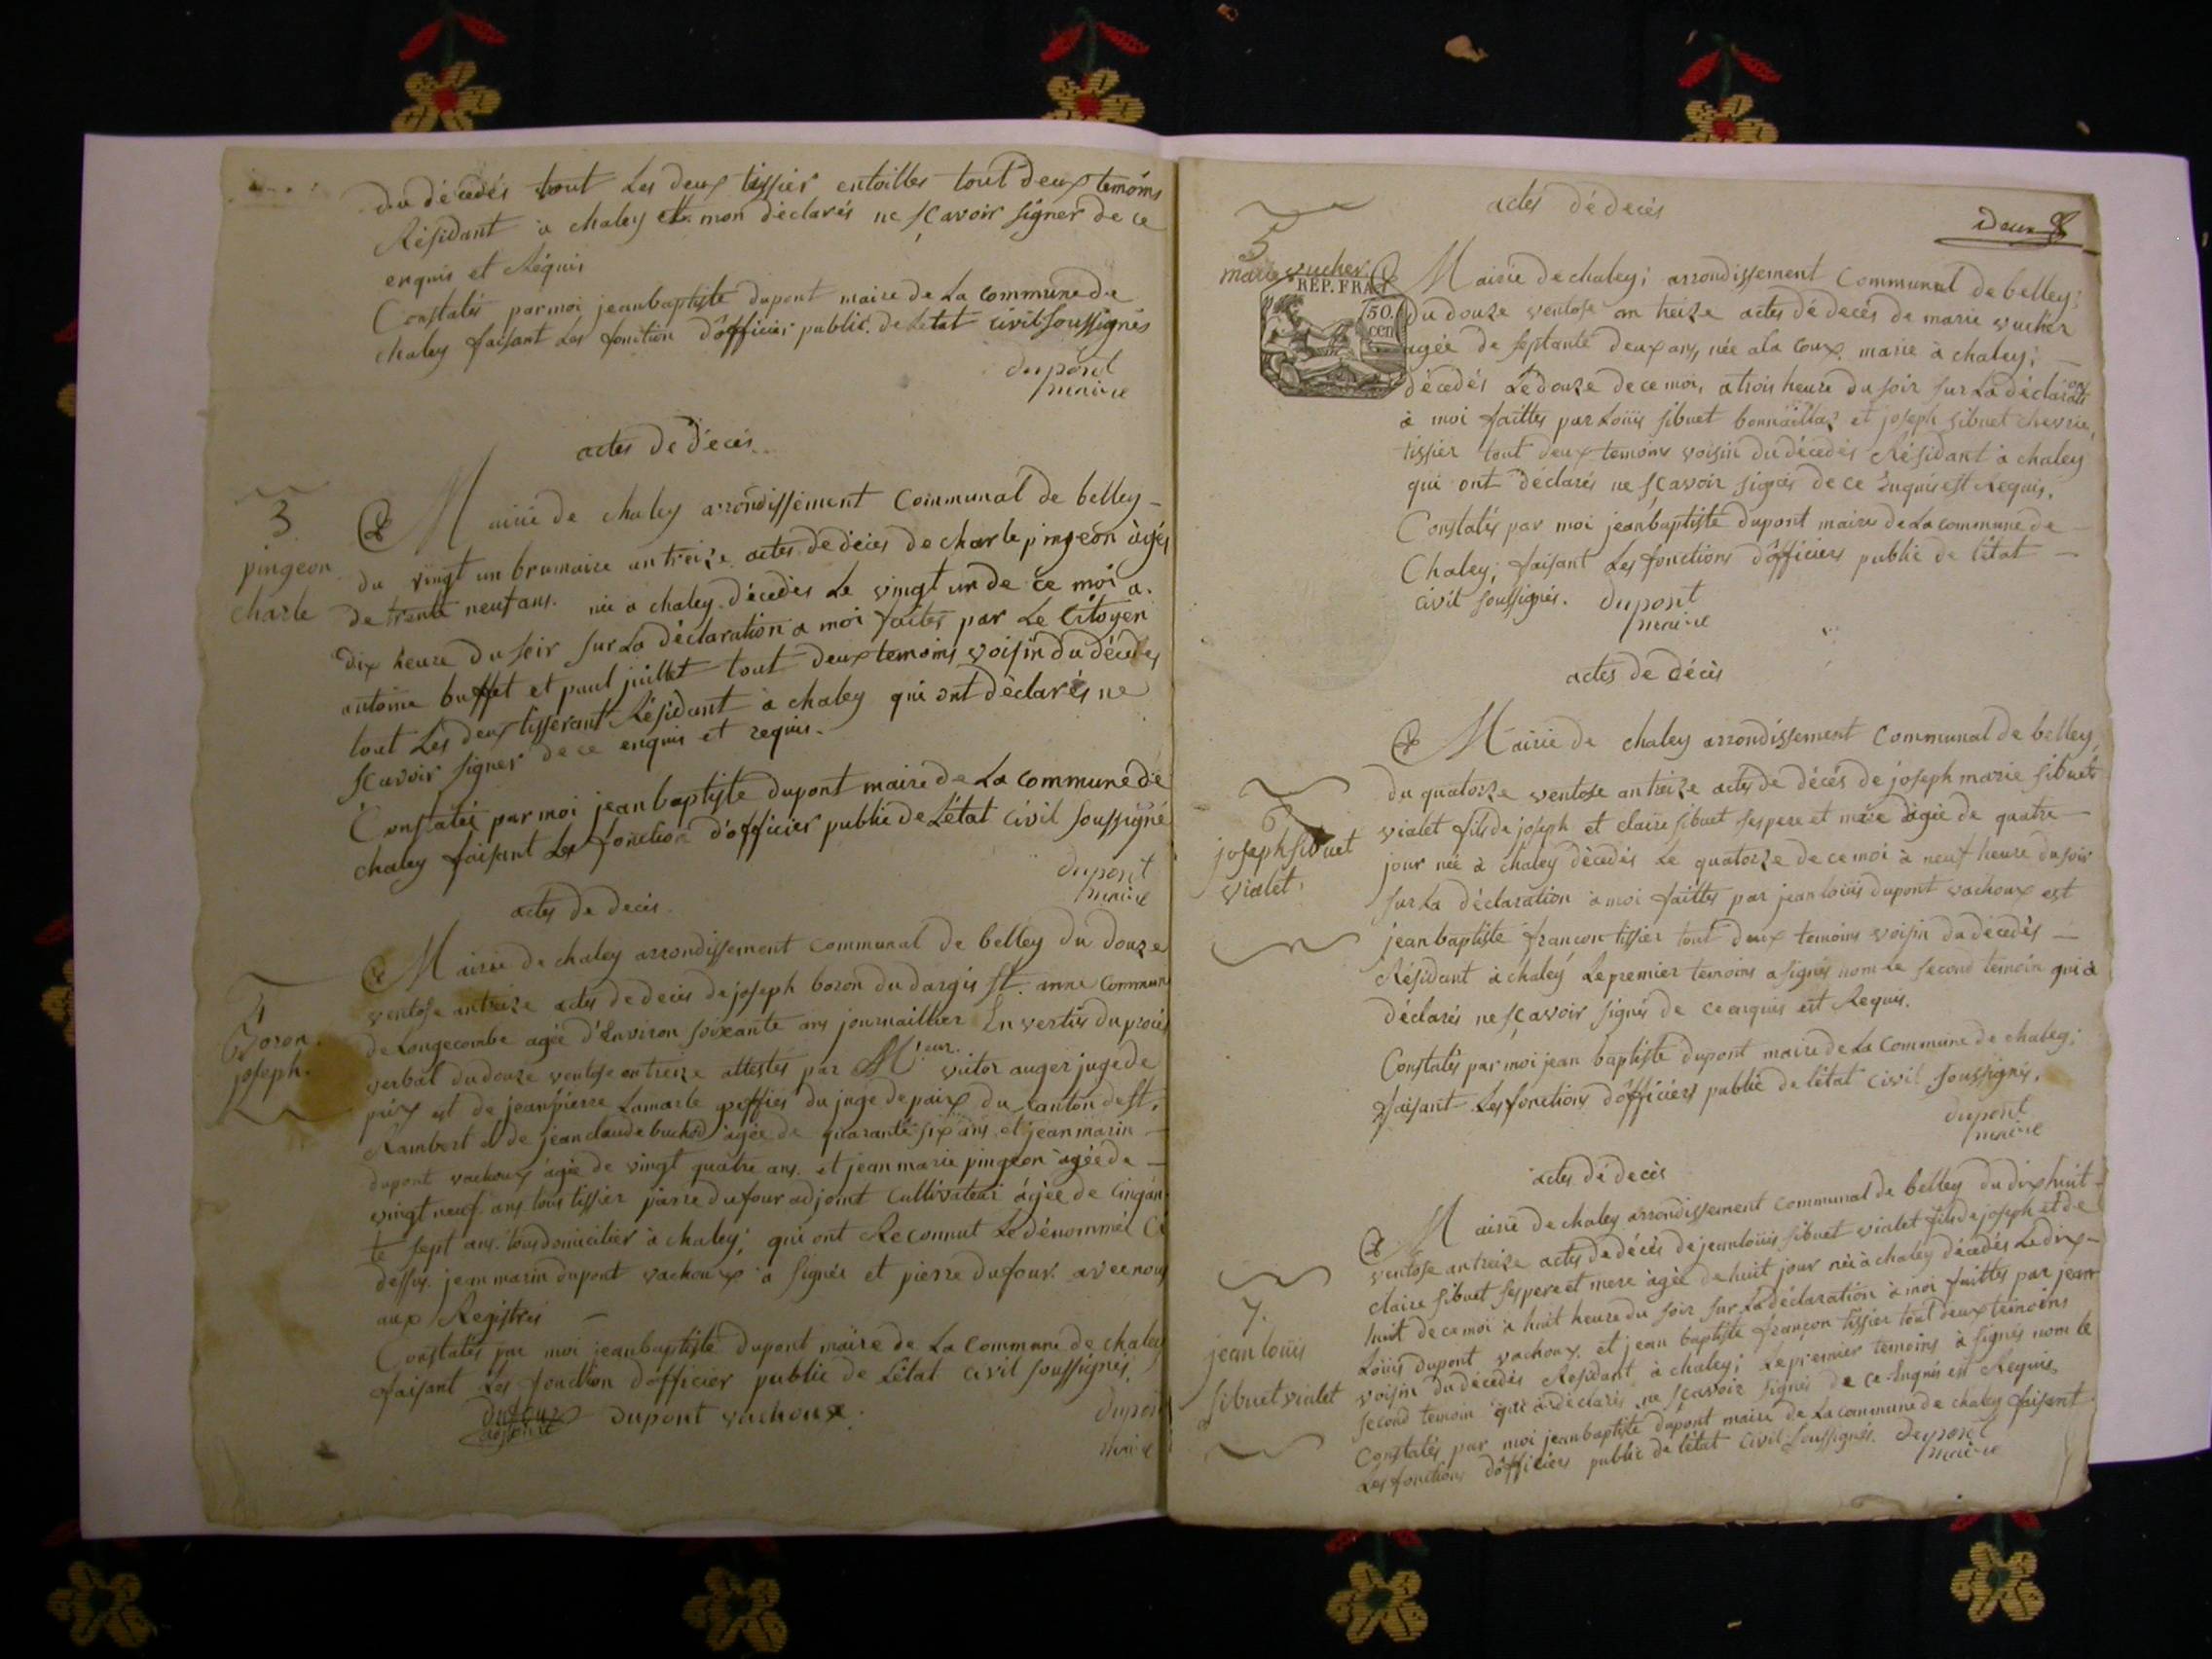 du décedés tout Les deux tissier entoilles tout deux temoins
Résidant a chaley et mon déclarés ne sçavoir signer de ce
enquis et Réquis
Constatés par moi jean baptiste dupont maire de La Commune de
chaley faisant Les fonction d'officier public de Letat civil Soussignés
dupont
maire
actes de décés
3
pingeon
charle
Mairie de chaley arrondissement Communal de belley
du vingt un brumaire an treize actes de décés de charle pingeon agés
de trente neuf ans. née a chaley décedés Le vingt un de ce moi a
dix heure du soir sur La déclaration a moi faites par Le Citoyen
antoine buffet et paul juillet tout deux temoins voisin du décedes
tout Les deux tisserant Résidant a chaley qui ont déclarés ne
sçavoir signer de ce enquis et requis.
Constatés par moi jean baptiste dupont maire de La Commune de
chaley faisant Les fonction d'officier public de L'état Civil Soussigné
dupont
maire
actes de deces
4
Boron
joseph.
Mairie de chaley arrondissement Communal de belley du douze
ventose an treize actes de deces de joseph boron du dargis St. anne Commune
de Longecombe agée d'Environ soixante ans journaillier En vertus du procés
verbal du douze ventose an treize attestés par Mr victor auger juge de
paix est de jean pierre Lamarle greffies du juge de paix du Canton de St.
Rambert et de jean claude buchod agée de quarante six ans et jean marin
dupont vachoux agée de vingt quatre ans. et jean marie pingeon agée de
vingt neuf ans tous tissier pierre dufour adjoint Cultivateur agée de Cinquan
te sept ans. tous domicilier a chaley; qui ont Reconnut Le dénommé Ci
dessus. jean marin dupont vachoux a signés et pierre dufour. avec nous
aux Registres
Constatés par moi jean baptiste dupont maire de La Commune de chaley
faisant Les fonction d'officier public de L'état Civil soussignés.
dufour dupont vachoux. dupont
adjoint maire
actes dé decés
Deux
5
marie vucher
RÉP. FRA
50.
cen
Mairie de chaley; arrondissement Communal de belley;
Du douze ventose an treize actes dé decés de marie vucher
agée de septante deux ans, née a La Coux. marie à chaley;
décedés Le douze de ce moi, a trois heure du soir sur La déclaration
à moi faittes par Loüis sibuet bonnaillaz et joseph sibuet chevrie,
tissier tout deux temoins voisin du décedés Résidant à chaley
qui ont déclarés ne sçavoir signés de ce Enquis est Requis.
Constatés par moi jean baptiste dupont maire de La Commune de
Chaley; faisant Les fonctions d'officiers public de l'état
civil soussignés. dupont
maire
actes de décés
joseph sibuet
vialet.
Mairie de chaley arrondissement Communal de belley,
du quatorze ventose an treize actes de décés de joseph marie sibuet
vialet fils de joseph et claire sibuet ses pere et mère agée de quatre
jour née à chaley décedés Le quatorze de ce moi à neuf heure du soir
sur La déclaration à moi faittes par jean Loüis dupont vachoux est
jean baptiste françon tissier tout deux temoins voisin du décedés
Résidant à chaley Le premier temoins a signés nom Le second temoin qui à
déclarés ne sçavoir signés de ce enquis est Requis.
Constatés par moi jean baptiste dupont maire de La Commune de chaley;
faisant Les fonctions d'officiers public de l'état Civil Soussignés.
dupont
maire
actes dé decés
7.
jean Loüis
sibuet vialet
Mairie de chaley arrondissement Communal de belley du dix huit
ventose an treize actes de décés de jean Loüis sibuet vialet fils de joseph et de
claire sibuet ses pere et mere agée de huit jour née à chaley décedés Le dix
huit de ce moi à huit heure du soir sur La déclaration à moi faittes par jean
Loüis dupont vachoux. et jean baptiste françon tissier tout deux témoins
voisin du décedés Résidant à chaley; Le premier temoins à signés nom Le
second temoin qui à déclarés ne sçavoir signés de ce Enquis est Requis
Constatés par moi jean baptiste dupont maire de La Commune de chaley faisant
Les fonctions d'officiers public de l'état Civil Soussignés. dupont
maire